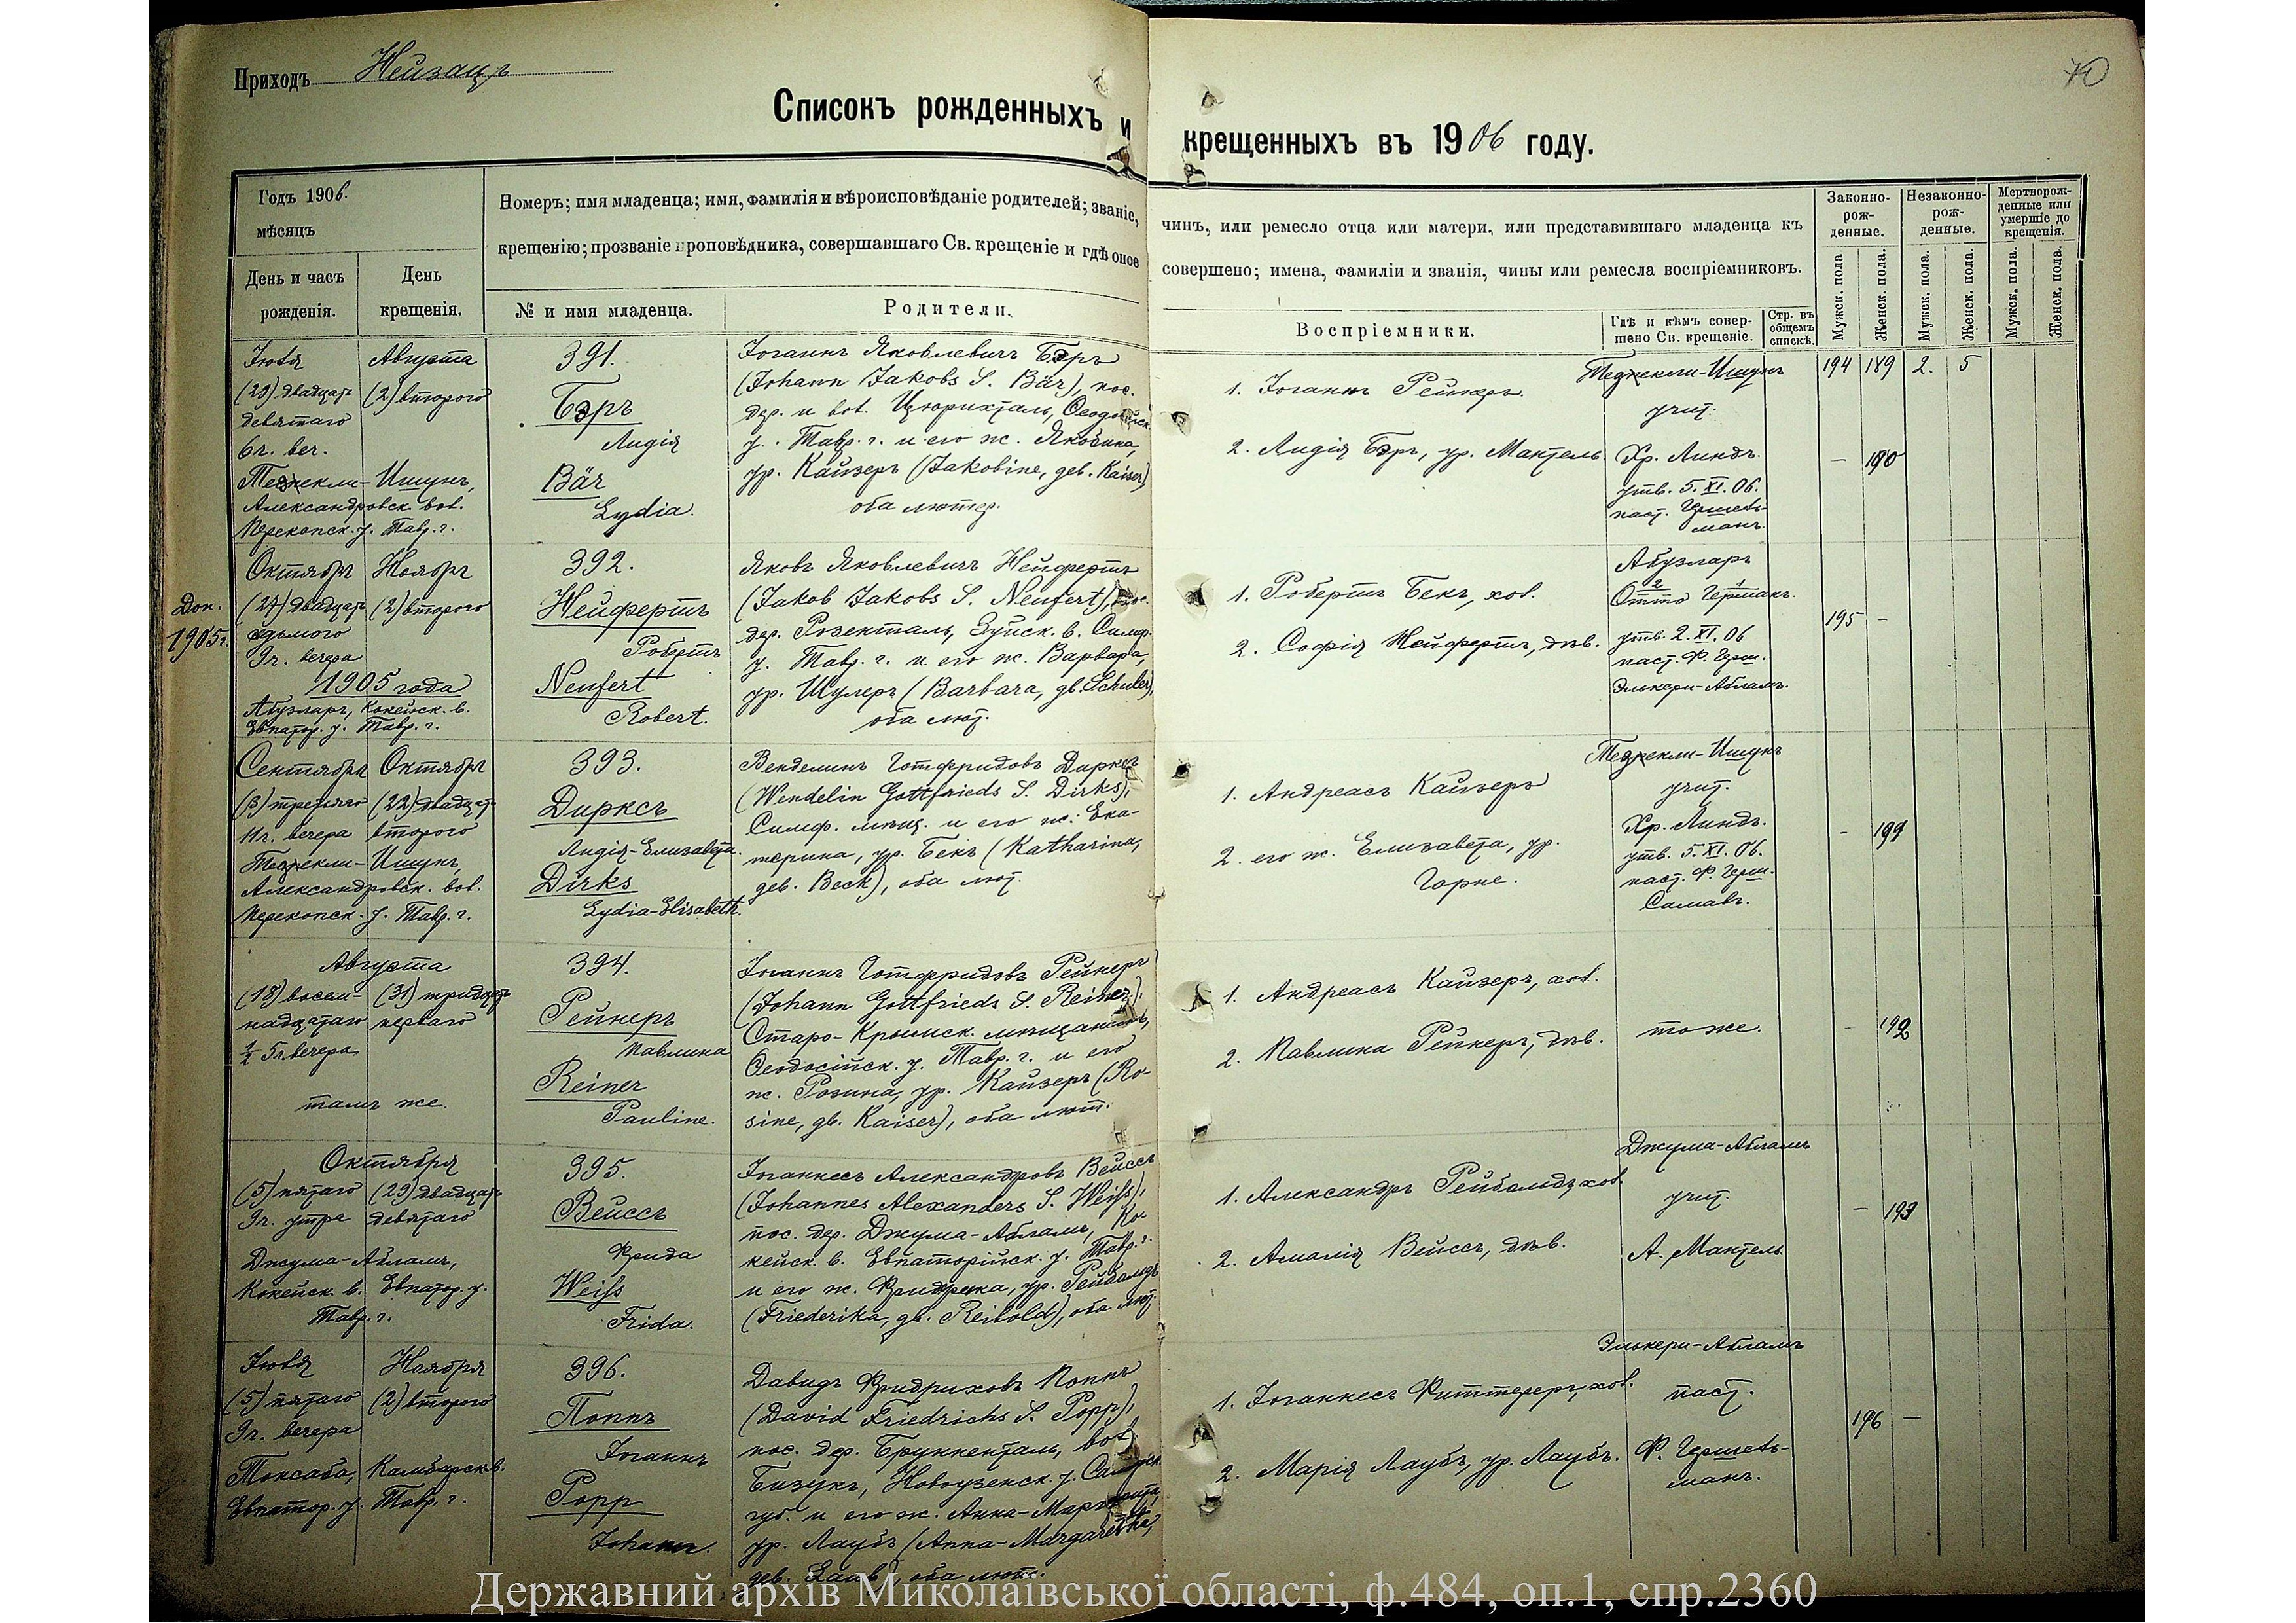 Приходъ Нейзацъ
70
Списокъ рожденныхъ и крещенныхъ въ 1906 году.
Годъ 1906.
мѣсяцъ
День и часъ рожденія.
День крещенія.
Номеръ; имя младенца; имя, фамилія и вѣроисповѣданіе родителей; званіе, чинъ, или ремесло отца или матери, или представившаго младенца къ
крещенію; прозваніе проповѣдника, совершавшаго Св. крещеніе и гдѣ оное совершено; имена, фамиліи и званія, чины или ремесла воспріемниковъ.
№ и имя младенца.
Родители.
Воспріемники.
Гдѣ и кѣмъ совершено Св. крещеніе.
Стр. въ общемъ спискѣ.
Законно-рожденные.
Незаконно-рожденные.
Мертворожденные или умершіе до крещенія.
Мужск. пола
Женск. пола.
Мужск. пола.
Женск. пола.
Мужск. пола.
Женск. пола.
Іюля
(29) двадцать
девятаго
6 ч. веч.
Августа
(2) второго
Александровск. вол.
Перекопск. у. Тавр. г.
391.
Бэръ
Лидія
Bär
Lydia.
Іоганнъ Яковлевичъ Бэръ
(Johann Jakobs S. Bär), пос.
дер. и вол. Цюрихталь, Ѳеодосійск.
у. Тавр. г. и его ж. Якобина,
ур. Кайзеръ (Jakobine, geb. Kaiser)
оба лютер.
1. Іоганнъ Рейнеръ.
2. Лидія Бэръ, ур. Мантель.
учит.
Хр. Линдъ.
утв. 5. XI. 06.
паст. Гершельманъ.
194 189 2. 5
– 190
Доп.
1905 г.
Октября
(27) двадцать
седьмого
9 ч. вечера
1905 года
Ноября
(2) второго
Абузларъ, Кокейск. в.
Евпатор. у. Тавр. г.
392.
Нейфертъ
Робертъ
Neufert
Robert.
Яковъ Яковлевичъ Нейфертъ
(Jakob Jakobs S. Neufert), пос.
дер. Розенталь, Зуйск. в. Симф.
у. Тавр. г. и его ж. Варвара,
ур. Шулеръ (Barbara, gb. Schuler),
оба лют.
1. Робертъ Бекъ, хол.
2. Софія Нейфертъ, дѣв.
Абузларъ
Отто Германъ.
утв. 2. XI. 06
паст. Ф. Герш.
Элькери-Абламъ.
195 –
Сентября
(3) третьяго
11 ч. вечера
Октября
(22) двадцать
второго
Александровск. вол.
Перекопск. у. Тавр. г.
393.
Дирксъ
Лидія-Елизавета.
Dirks
Lydia-Elisabeth.
Венделинъ Готфридовъ Дирксъ
(Wendelin Gottfrieds S. Dirks),
Симф. мѣщ. и его ж. Екатерина, ур. Бекъ (Katharina,
geb. Beck), оба лют.
1. Андреасъ Кайзеръ
2. его ж. Елизавета, ур.
Горне.
учит.
Хр. Линдъ.
утв. 5. XI. 06.
паст. Ф. Герш.
– 191
Августа
(18) восемнадцатаго
½ 5 ч. вечера
(31) тридцать
перваго
тамъ же.
394.
Рейнеръ
Павлина
Reiner
Pauline.
Іоганнъ Готфридовъ Рейнеръ
(Johann Gottfrieds S. Reiner),
Старо-Крымск. мѣщанинъ,
Ѳеодосійск. у. Тавр. г. и его
ж. Розина, ур. Кайзеръ (Rosine, gb. Kaiser), оба лют.
1. Андреасъ Кайзеръ, хол.
2. Павлина Рейнеръ, дѣв.
тоже.
– 192
Октября
(5) пятаго
9 ч. утра
(29) двадцать
девятаго
Джума-Абламъ,
Кокейск. в. Евпатор. у.
Тавр. г.
395.
Вейссъ
Фрида
Weiß
Frida.
Іоганнесъ Александровъ Вейссъ
(Johannes Alexanders S. Weiß),
пос. дер. Джума-Абламъ, Кокейск. в. Евпаторійск. у. Тавр. г.
и его ж. Фридерика, ур. Рейбольдъ
(Friederika, gb. Reibold), оба лют.
1. Александръ Рейбольдъ, хол.
2. Амалія Вейссъ, дѣв.
Джума-Абламъ
учит.
А. Мантель.
– 193
Іюля
(5) пятаго
9 ч. вечера
Ноября
(2) второго
Токсаба, Камбарск. в.
Евпатор. у. Тавр. г.
396.
Поппъ
Іоганнъ
Popp
Johann.
Давидъ Фридриховъ Поппъ
(David Friedrichs S. Popp),
пос. дер. Брункенталь, вол.
Бизукъ, Новоузенск. у. Самарск.
губ. и его ж. Анна-Маргарита,
ур. Лаубъ (Anna-Margaretha,
geb. Laub), оба лют.
1. Іоганнесъ Фиттереръ, хол.
2. Марія Лаубъ, ур. Лаубъ.
Элькери-Абламъ
паст.
Ф. Гершельманъ.
196 –
Державний архів Миколаївської області, ф.484, оп.1, спр.2360